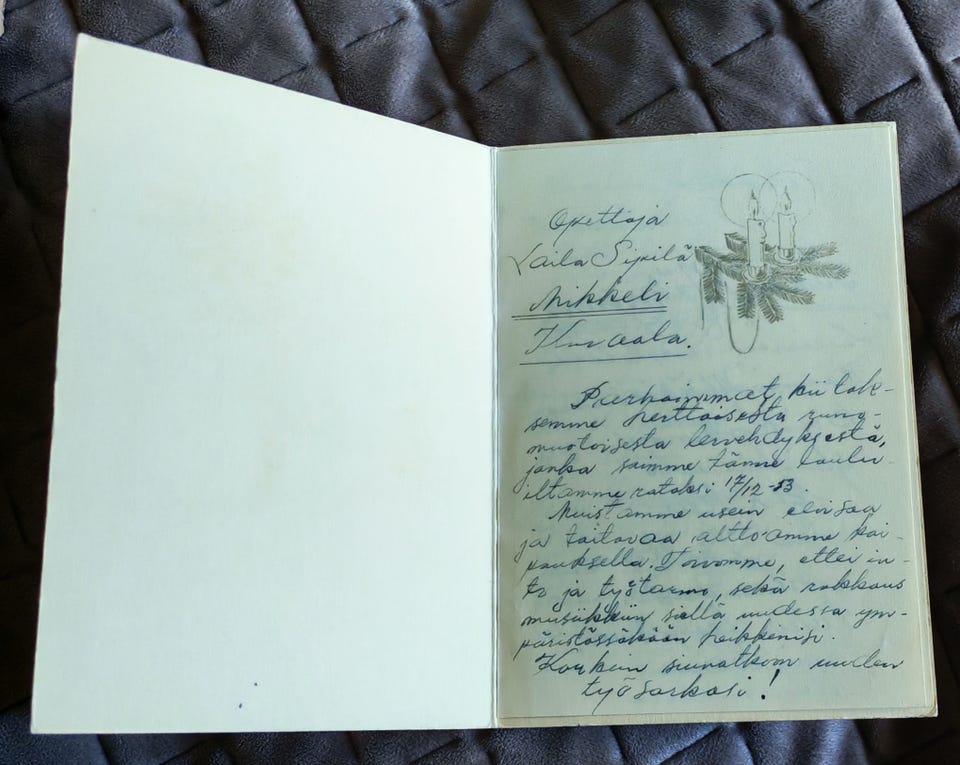 Opettaja
Laila Sipilä
Mikkeli
Kuraala.
Parhaimmat kiitok-
semme herttaisesta runo-
muotoisesta tervehdyksestä,
jonka saimme tänne laulu-
iltamme ratoksi 17/12-53.
Muistamme usein eloisaa
ja taitavaa alttoamme kai-
pauksella. Toivomme, ettei in-
to ja työtarmo, sekä rakkaus
musiikkiin siellä uudessa ym-
päristössäkään heikkenisi.
Korkein siunatkoon uuden
työsarkasi!